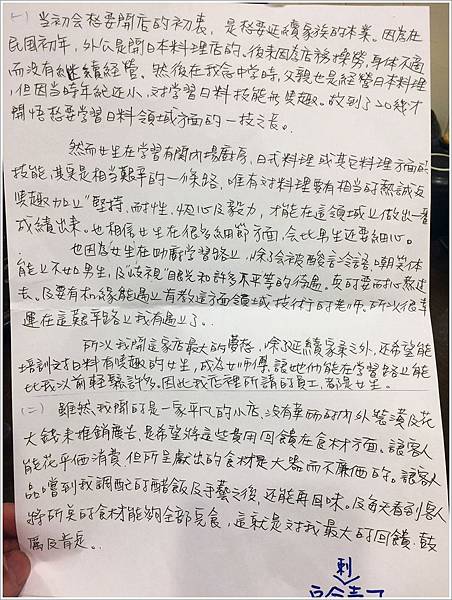 (一) 當初會想要開店的初衷,是想要延續家族的本業。因為在
民國初年,外公是開日本料理店的。後來因為店務操勞,身体不適
而沒有繼續經營。然後在我念中學時,父親也是經營日本料理
,但因當時年紀还小,对學習日料技能無興趣。故到了20幾才
開悟想要學習日料領域方面的一技之長。
然而女生在學習有關內場廚房,日式料理或其它料理方面的
技能,其实是相當艱辛的一條路,唯有对料理要有相当的熱誠及
興趣加上"堅持,耐性,恒心及毅力,才能在這領域上做出一番
成績出來。也相信女生在很多細節方面,会比男生还要細心。
也因為女生在助廚學習路上,除了会被酸言冷語.嘲笑体
能上不如男生,及"歧視"眼光和許多不平等的待遇,真的要耐心熬過
去。及要有机緣能遇上有教這方面領域技術的老师。所以很幸
運在這艱辛路上我有遇上了。
所以我開這家店最大的夢想,除了延續家柔之外,还希望能
培訓对日料有興趣的女生,成為女师傅,讓她们能在學習路上能
比我以前輕鬆許多。因此我店裡所請的員工,都是女生。
(二) 雖然我開的是一家平凡的小店,沒有華丽的內外裝潢及花
大錢來推銷廣告,是希望將這些費用回饋在食材方面。讓客人
能花平価消費,但所呈獻出的食材是大器而不廉価的。讓客人
品嚐到我調配的醋飯及手藝之後,还能再回味。及每天看到客人
將所美的食材能夠全部完食,這就是对我最大的回饋.鼓
厲及肯定。
刺